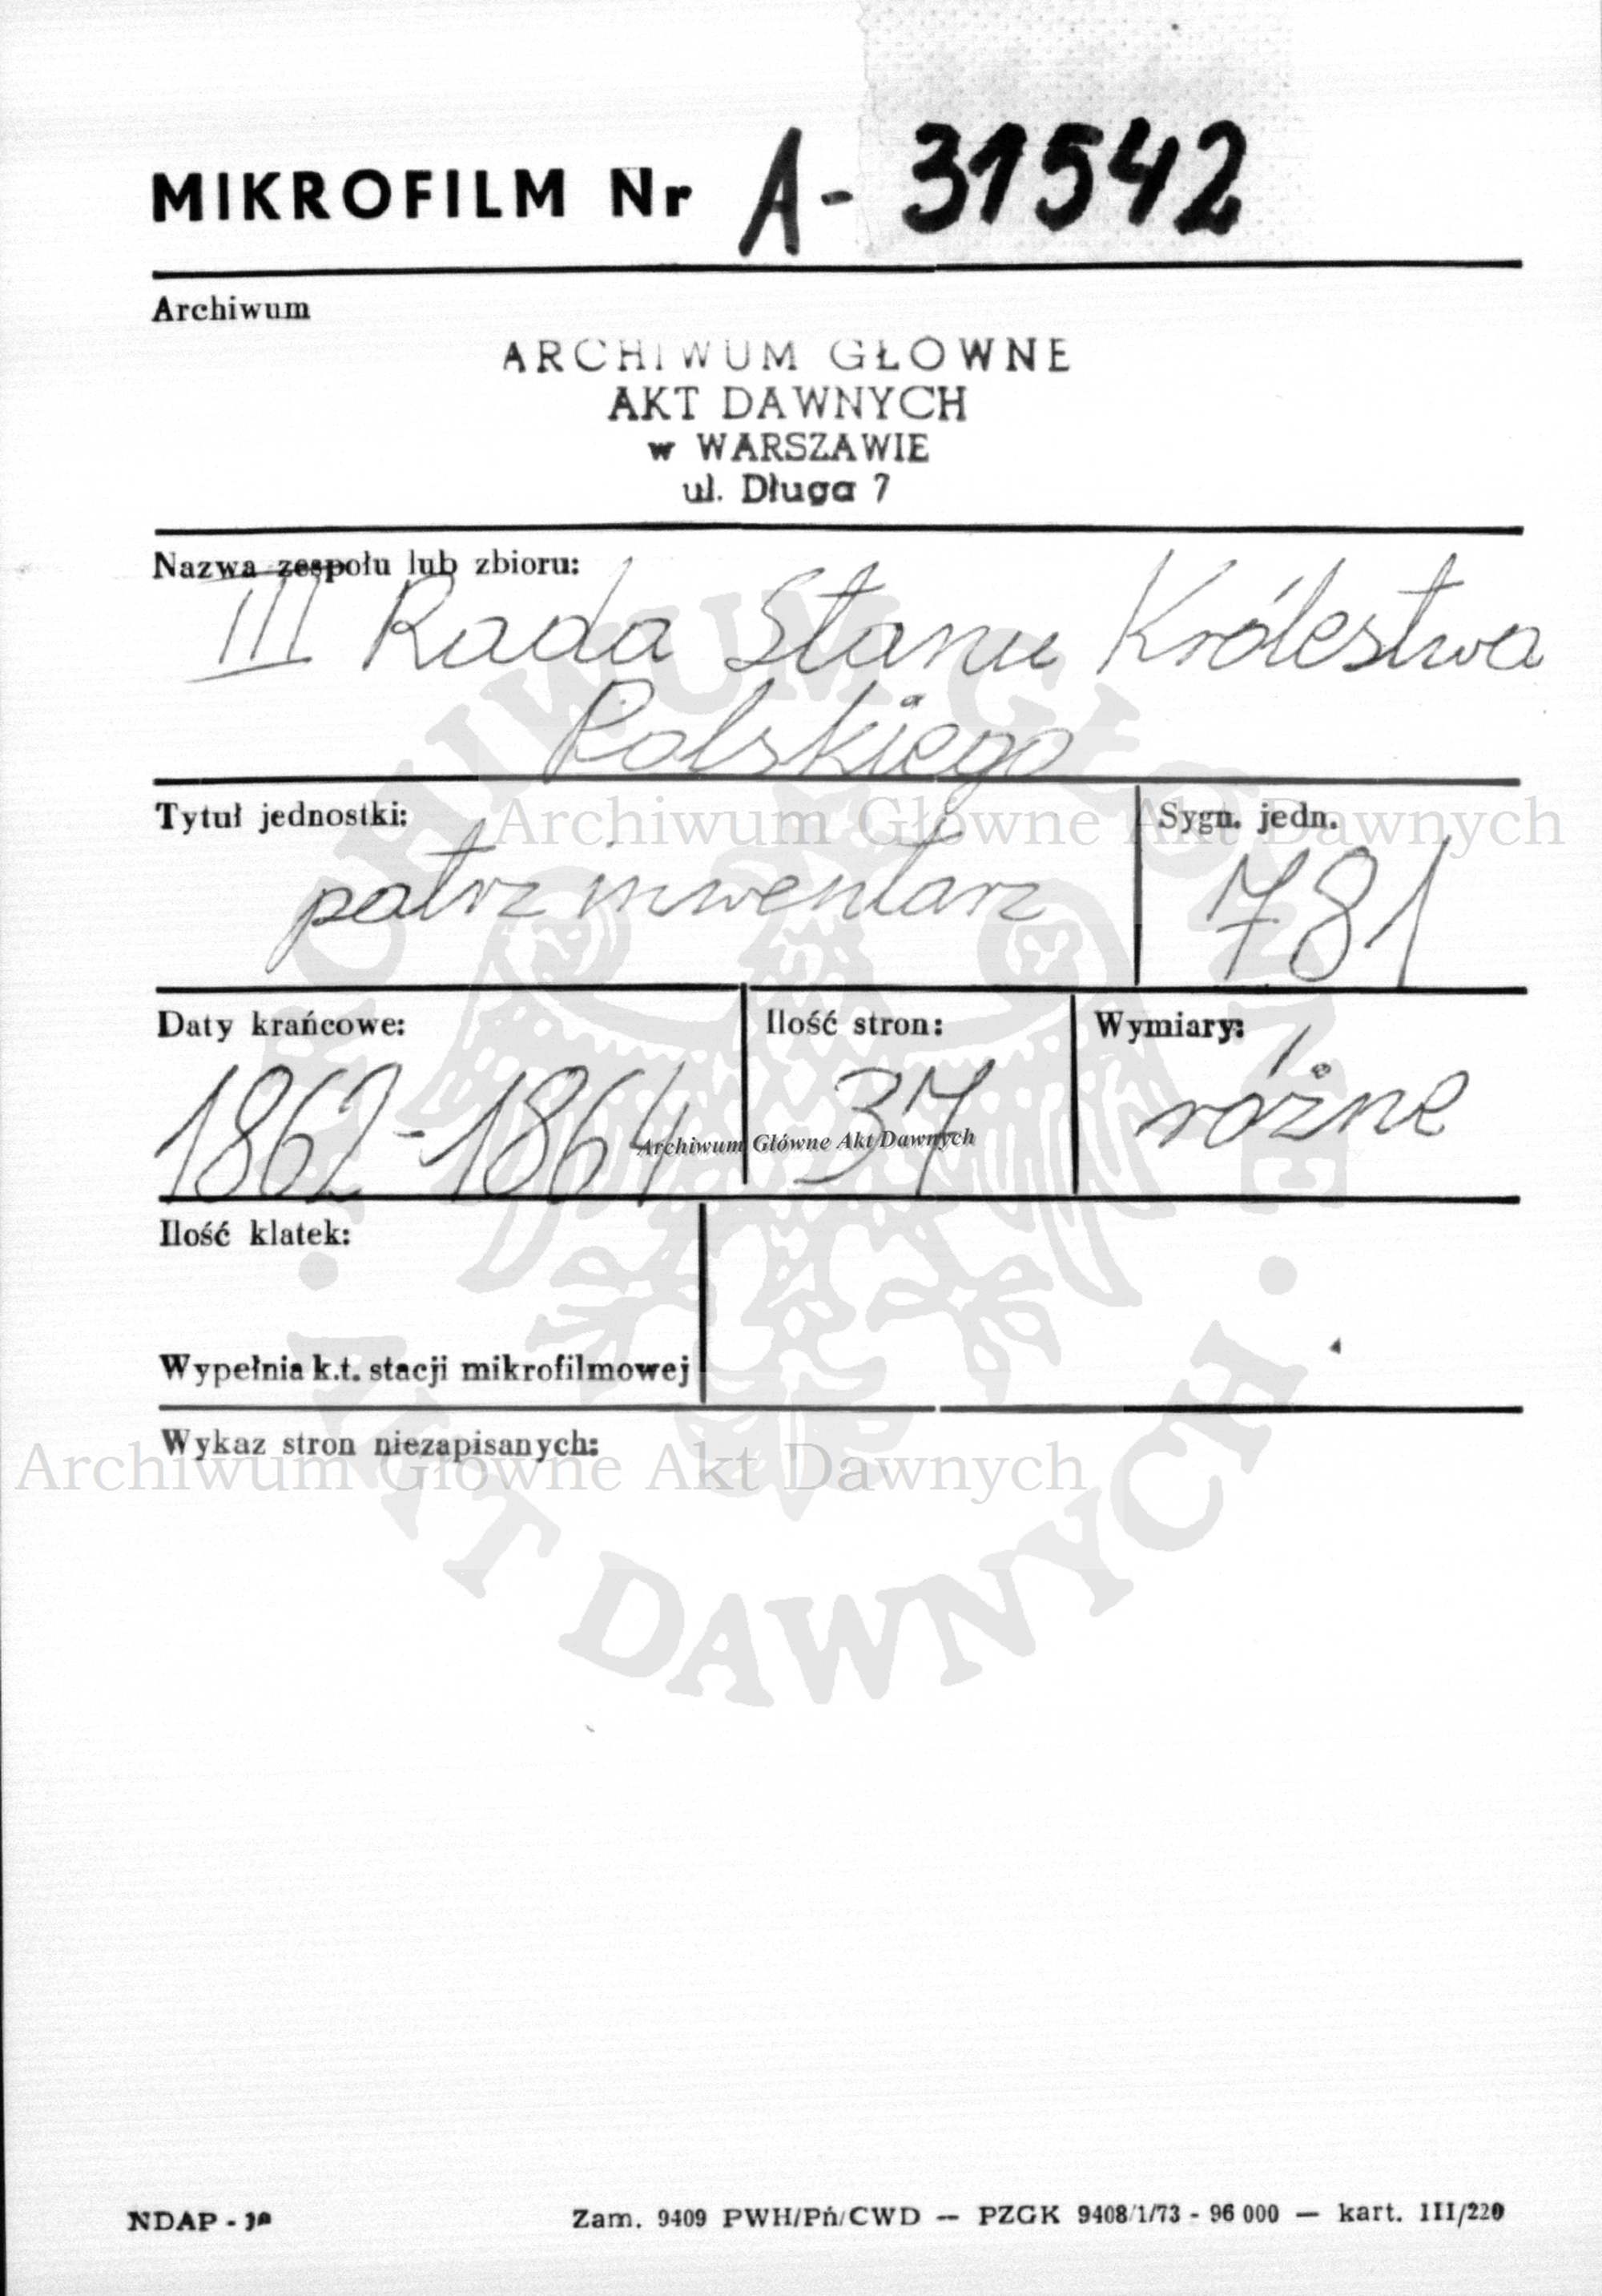 MIKROFILM Nr A- 31542
Archiwum
ARCHIWUM GŁOWNE
AKT DAWNYCH
w WARSZAWIE
ul. Długa 7
Nazwa zespołu lub zbioru:
III Rada Stanu Królestwa
Polskiego
Tytuł jednostki:
Sygn. jedn.
Archiwum Główne Akt Dawnych
patrz inwentarz
781
Daty krańcowe:
Ilość stron:
Wymiary:
1862-1864
37
różne
Archiwum Główne Akt Dawnych
Ilość klatek:
Wypełnia k.t. stacji mikrofilmowej
Wykaz stron niezapisanych:
Archiwum Główne Akt Dawnych
ARCHIWUM GŁÓWNE
· AKT DAWNYCH ·
NDAP -
Zam. 9409 PWH/Pń/CWD — PZGK 9408/1/73 - 96 000 — kart. III/220